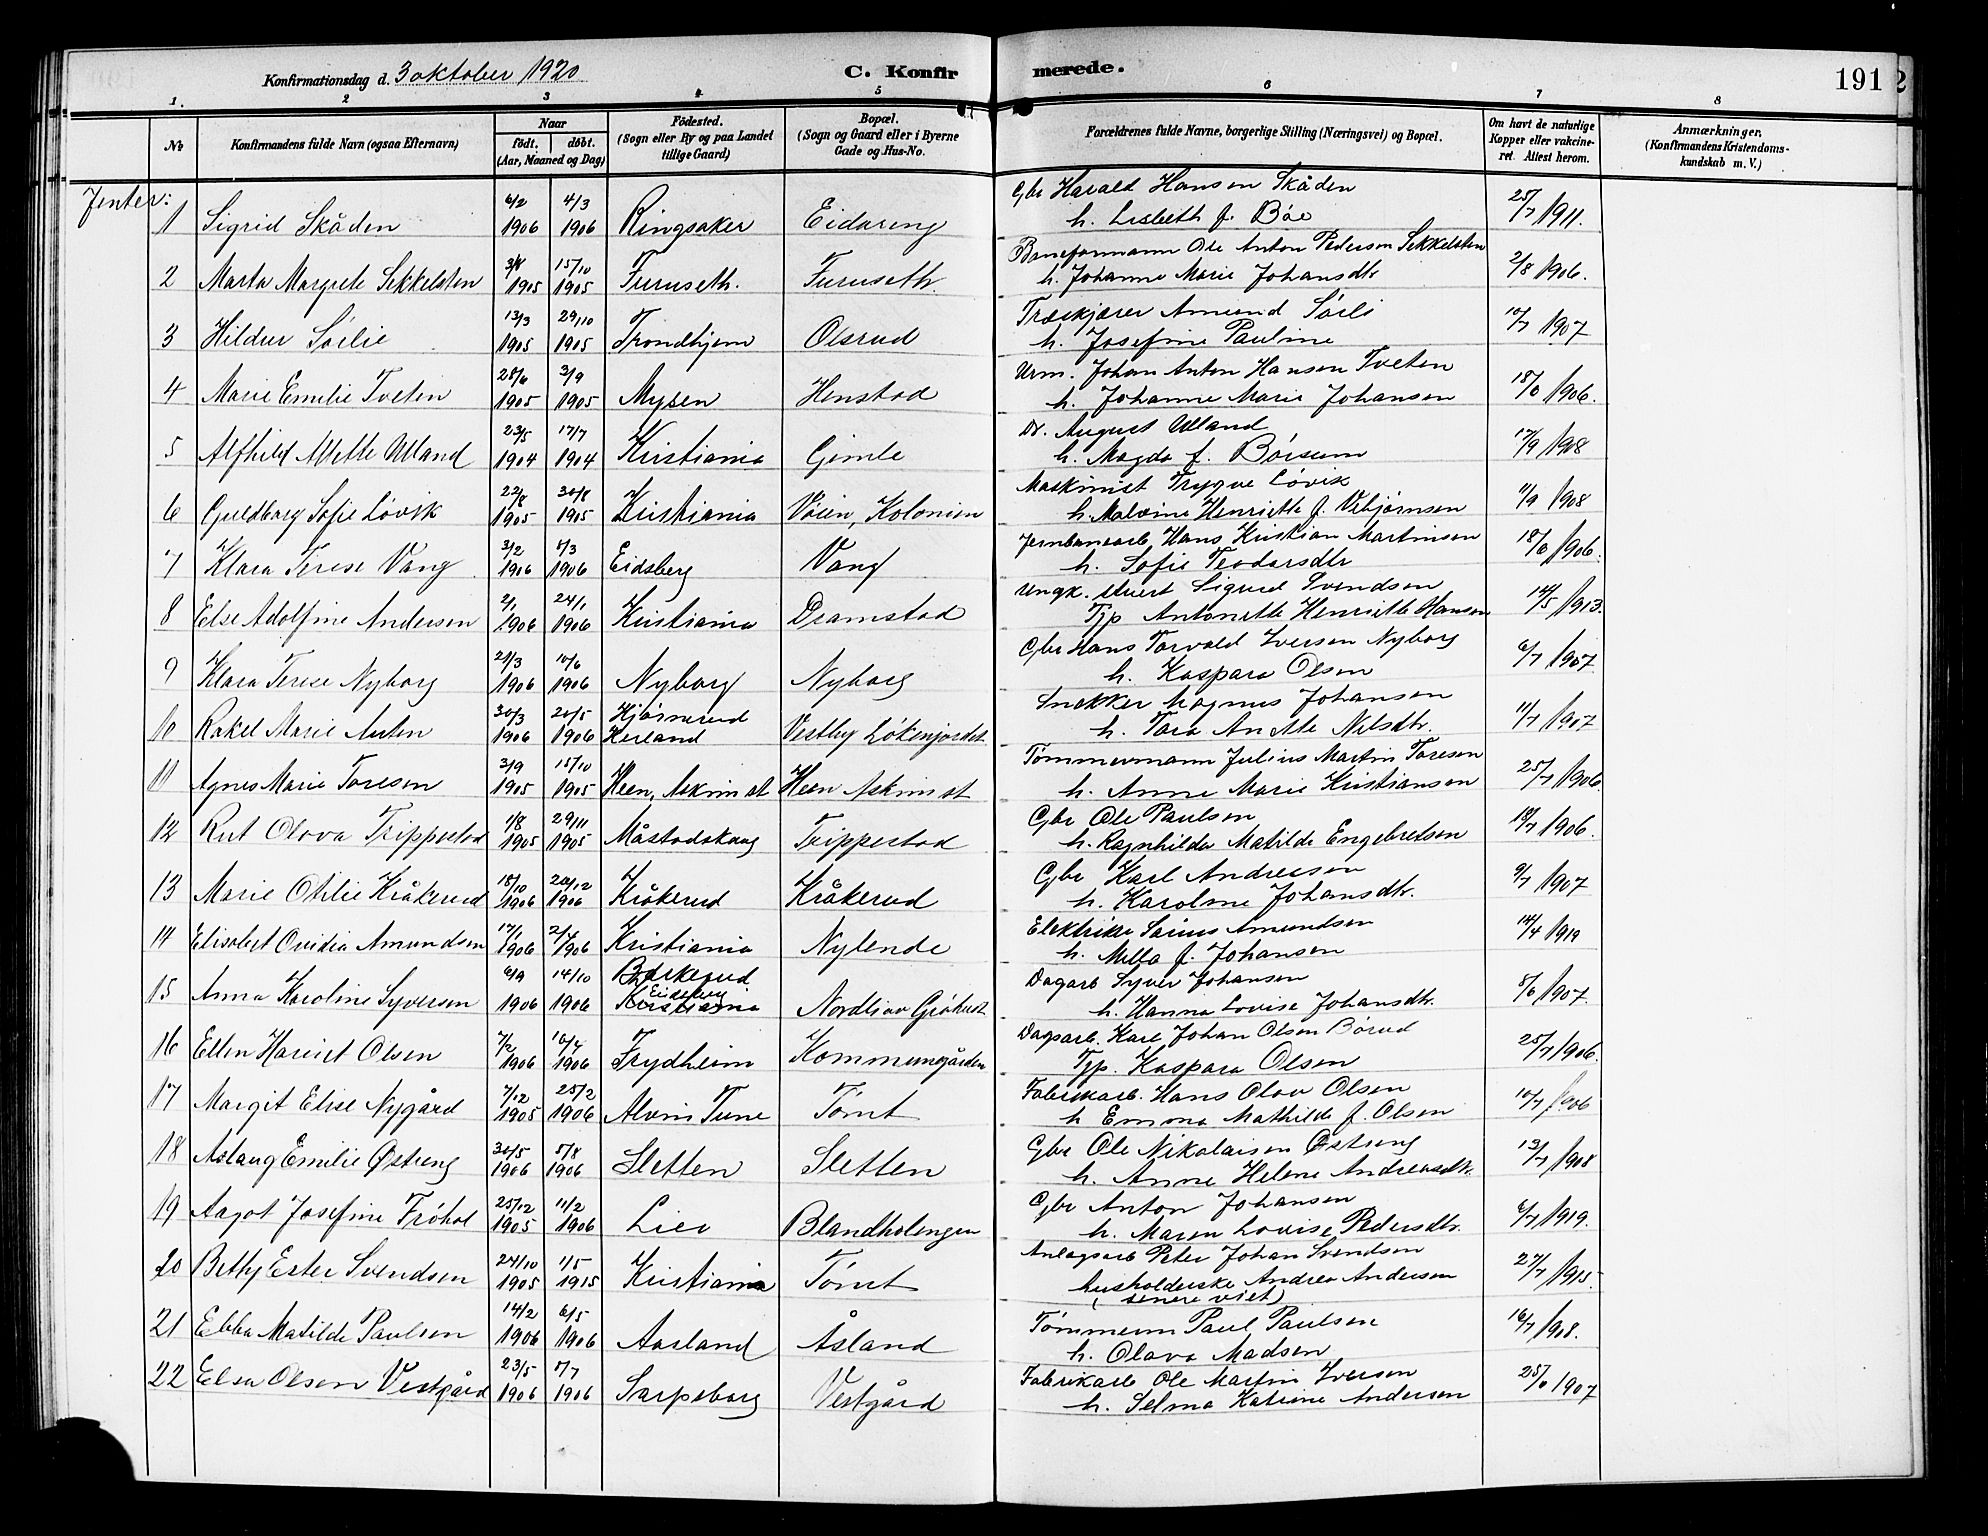 Konfirmationsdag d. 3 oktober 1920 C. Konfirmerede. 191
1. 2 3 4 5 6 7 8
No
Konfirmandens fulde Navn (ogsaa Efternavn)
Naar
födt. döbt.
(Aar, Maaned og Dag)
Födested.
(Sogn eller By og paa Landet
tillige Gaard)
Bopæl.
(Sogn og Gaard eller i Byerne
Gade og Hus-No.
Forældrenes fulde Navne, borgerlige Stilling (Næringsvei) og Bopæl.
Om havt de naturlige
Kopper eller vakcine-
ret. Attest herom.
Anmærkninger.
(Konfirmandens Kristendoms-
kundskab m. V.)
Jenter:
6/2 4/3 Gbr Harald Hansen Skåden
1 Sigrid Skåden 1906 1906 Ringsaker Eidareng h. Lisbeth f. Böe 25/7 1911.
15/10 Baneformann Ole Anton Pedersen Sekkelsten
2 Marta Margrete Sekkelsten 1905 1905 Furuseth. Furuseth. h. Johanne Marie Johansdtr 2/8 1906.
13/3 29/10 Træskjærer Amund Sörli
3 Hildur Sörlie 1905 1905 Trondhjem Olsrud h. Josefine Pauline 10/7 1907
28/6 3/9 Urm. Johan Anton Hansen Tveten
4 Marie Emilie Tveten 1905 1905 Mysen Henstad h. Johanne Marie Johansen 1906.
23/5 17/7 Dr. August Ulland
5 Alfhild Mette Ulland 1904 1904 Kristiania Gimle h. Magda f. Börsum 17/9 1908
22/8 30/8 Maskinist Trygve Lövik
6 Guldborg Sofie Lövik 1905 1905 Kristiania Vöien, Kolonien h. Malvine Henriette f. Vebjörnsen 11/9 1908
3/2 Jernbanearb Hans Kristian Martinsen
7 Klara Terese Vang 1906 1906 Eidsberg Vang h. Sofie Teodorsdtr 1906.
2/1 24/1 Ungk. stuert Sigurd Svendsen
8 Else Adolfine Andersen 1906 1906 Kristiania Dramstad Tjp Antonette Henriette Hansen 14/5 1913.
21/3 10/6 Gbr Hans Torvald Iversen Nyborg
9 Klara Terese Nyborg 1906 1906 Nyborg Nyborg h. Kaspara Olsen 6/7 1907
30/3 20/5 Hjörnerud Snekker Magnus Johansen
10 Rakel Marie Auten 1906 1906 Herland Vestby Lökenjordet h. Tora Anette Nilsdtr. 11/7 1907
3/9 15/10 Tömmermann Julius Martin Toresen
11 Agnes Marie Toresen 1905 1905 Heen, Askim st Heen Askim st h. Anne Marie Kristiansen 25/7 1906.
1/8 29/11 Gbr Ole Paulsen
12 Rut Olova Trippestad 1905 1905 Måstadskaug Trippestad h. Ragnhilda Matilde Engebretsen 18/7 1906.
18/10 20/12 Gbr Karl Andersen
13 Marie Otilie Kråkerud 1906 1906 Kråkerud Kråkerud h. Karoline Johansdtr. 9/7 1907
17/1 2/4 Elektriker Amundsen
14 Elisabet Ovidia Amundsen 1906 1906 Kristiania Nylende h. Milla f. Johansen 14/4 1919
6/9 14/10 Dagarb Syver Johansen
15 Anna Karoline Syversen 1906 1906 Eidsberg Kristiania h. Hanna Lovise Johansdtr. 8/6 1907
7/2 10/4 Dagsarb. Karl Johan Olsen Börud
16 Ellen Hariet Olsen 1906 1906 Frydheim Kommunegården Tjp. Kaspara Olsen 25/7 1906.
7/12 25/2 Fabrikarb. Hans Olav Olsen
17 Margit Elise Nygård 1905 1906 Alvim Tune Tömt h Emma Mathilde f. Olsen 10/7 1906
30/5 5/8 Gbr Ole Nikolaisen Østreng
18 Aslaug Emilie Østreng 1906 1906 Sletten Sletten h. Anne Helene Andreasdtr. 13/7 1908
25/12 11/2 Gbr Anton Johansen
19 Aagot Josefine Fröhol 1905 1906 Lier Blandholengen h. Maren Lovise Pedersdtr. 6/7 1919.
24/10 1/5 Anlægsarb Peter Johan Svendsen
20 Bethy Ester Svendsen 1905 1915 Kristiania Tömt husholderske Andrea Andersen 27/7 1915
(senere viet)
14/2 6/5 Tömmerm Paul Paulsen
21 Ebba Matilde Paulsen 1906 1906 Aasland Åsland h. Olava Madsen 16/7 1908.
23/5 Fabrikarb Ole Martin Iversen
22 Elsa Olsen Vestgård 1906 1906 Sarpsborg Vestgård h. Selma Katrine Andersen 1907